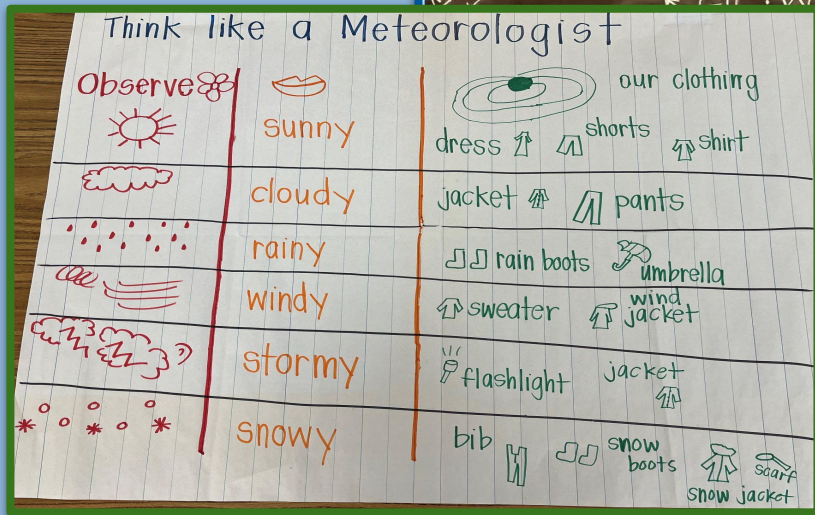 Think like a Meteorologist
Observe
our clothing
sunny
dress shorts shirt
cloudy
jacket pants
rainy
rain boots umbrella
windy
sweater wind jacket
stormy
flashlight jacket
snowy
bib snow boots scarf
snow jacket